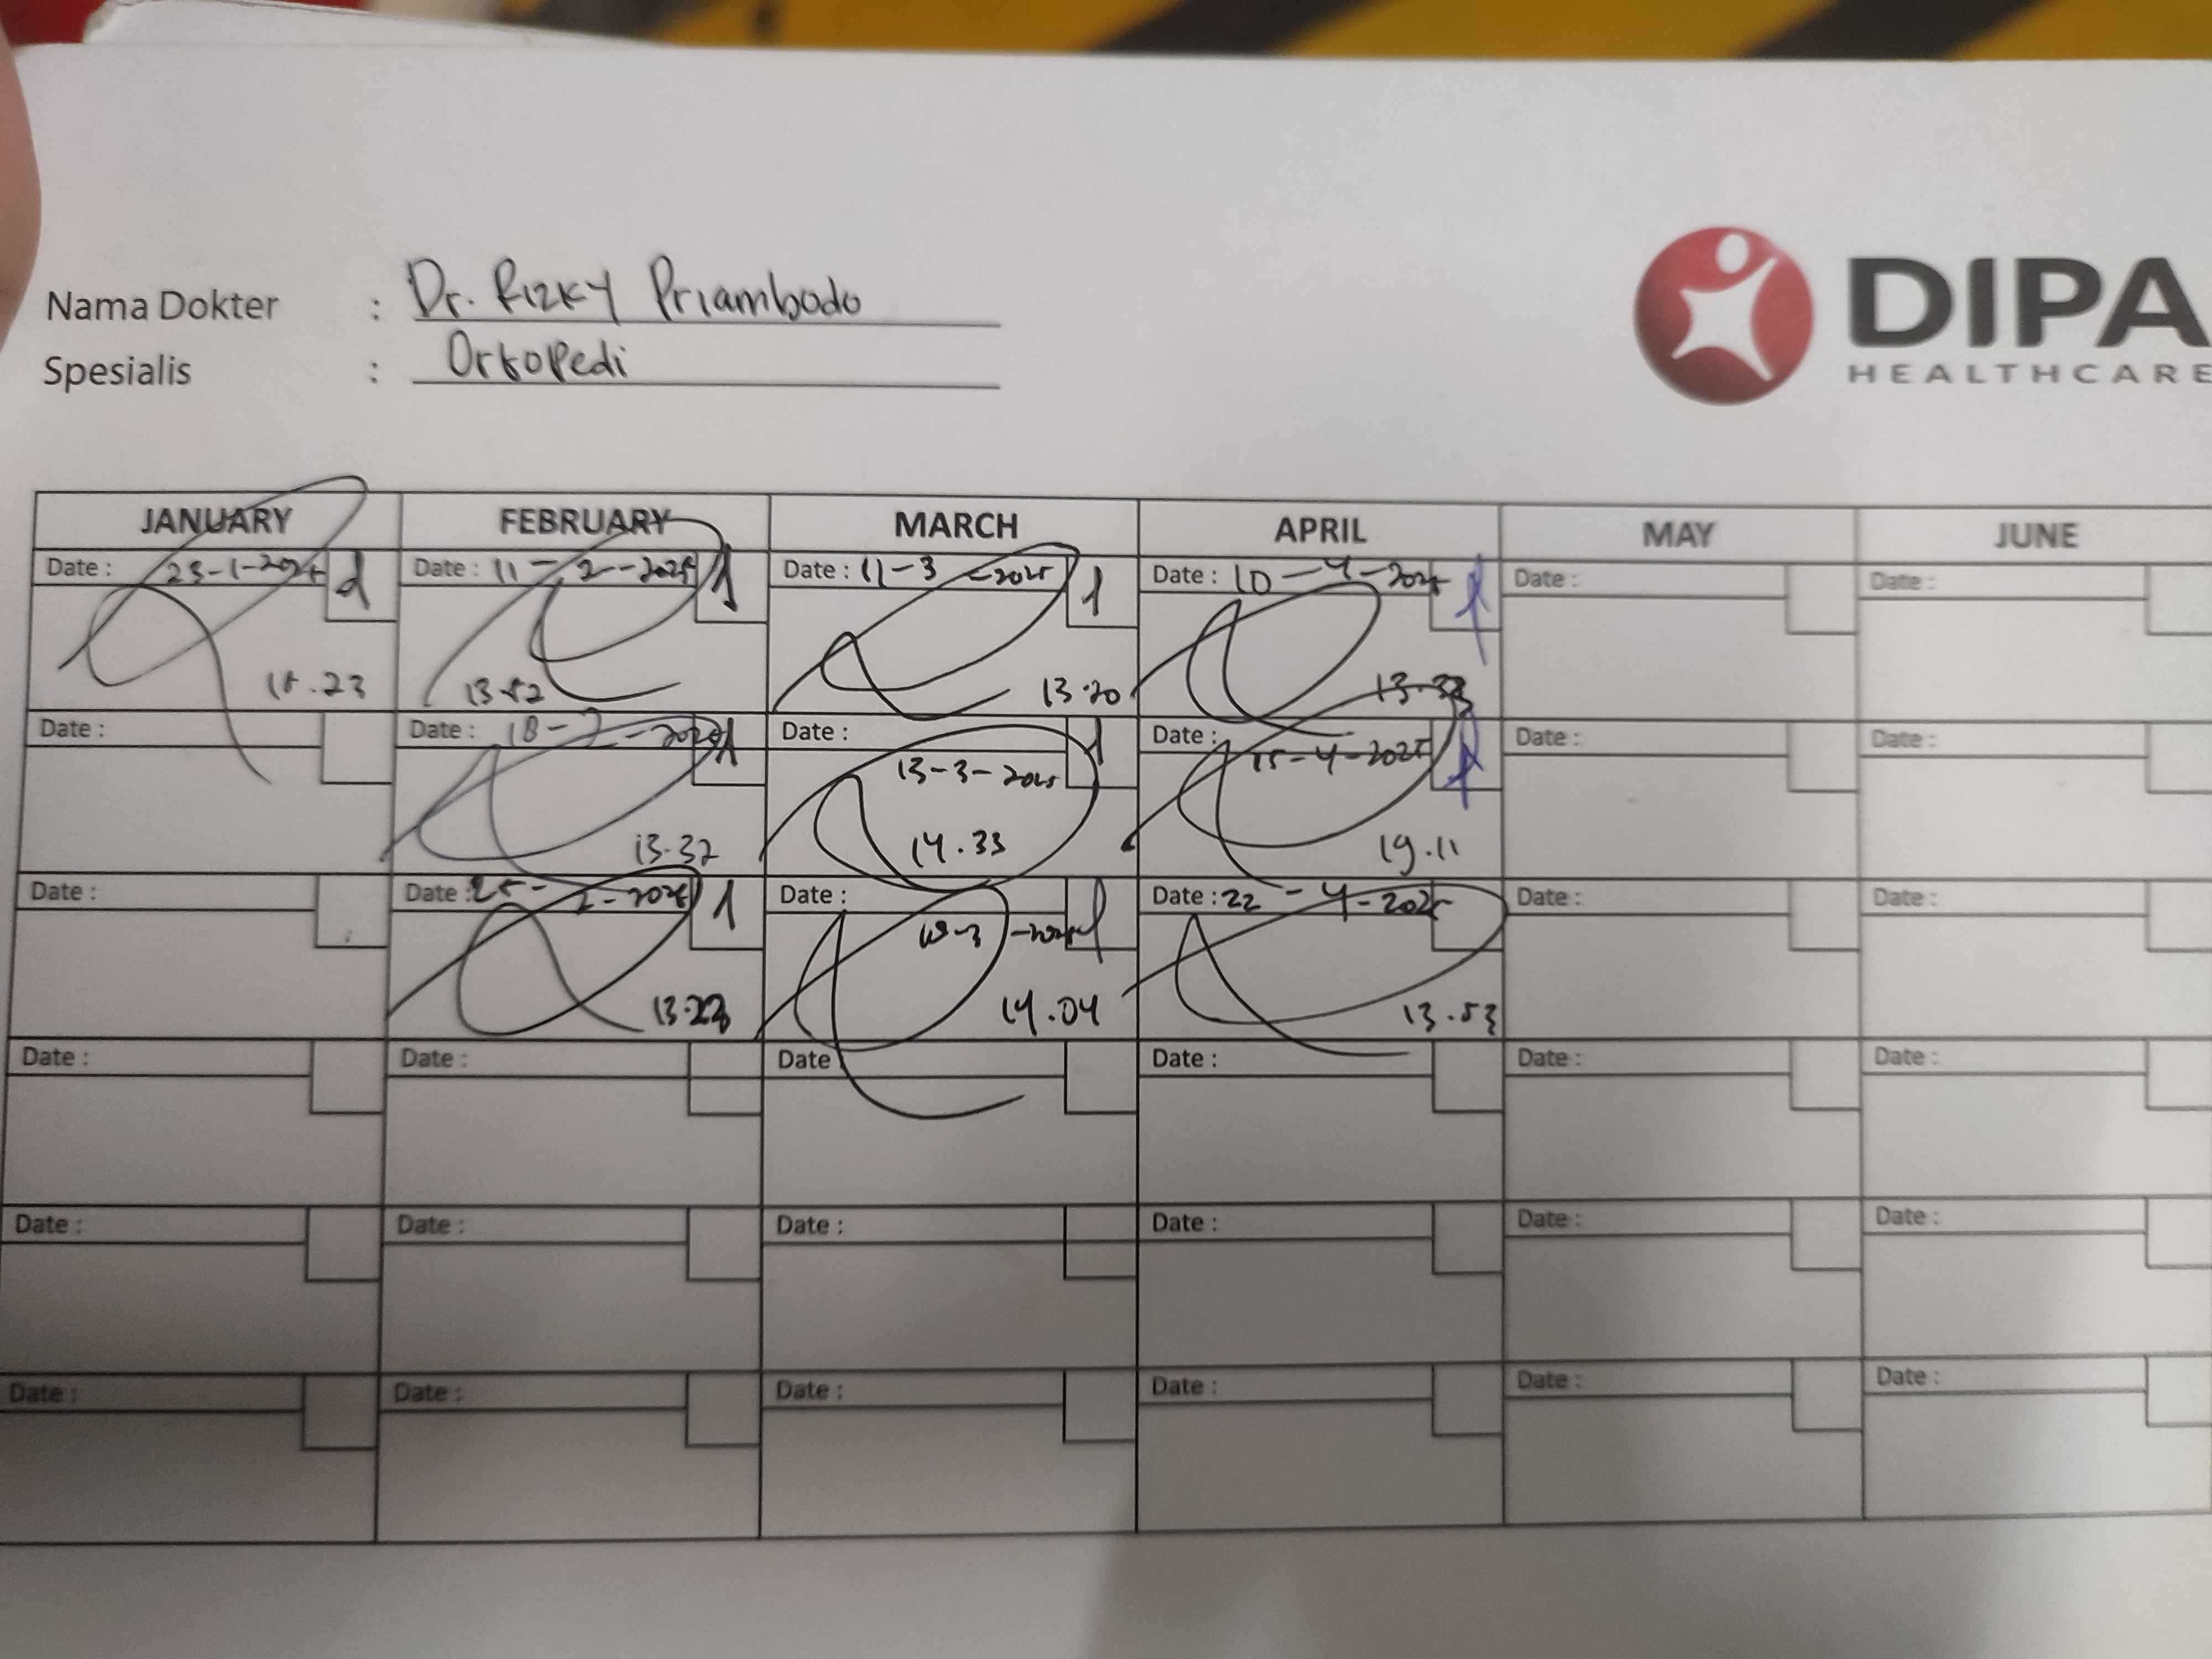 Nama Dokter : Dr. Rizky Priambodo
Spesialis : Ortopedi
DIPA
HEALTHCARE
JANUARY FEBRUARY MARCH APRIL MAY JUNE
Date : 23-1-2025 Date : 11-2-2025 Date : 11-3-2025 Date : 10-4-2025 Date : Date :
13.52 13.20
Date : Date : 18-2-2025 Date : Date : Date : Date :
13-3-2025 15-4-2025
13.37 14.33 19.11
Date : Date : 25-2-2025 Date : Date : 22-4-2025 Date : Date :
14.04 13.53
Date : Date : Date Date : Date : Date :
Date : Date : Date : Date : Date : Date :
Date : Date : Date : Date : Date : Date :